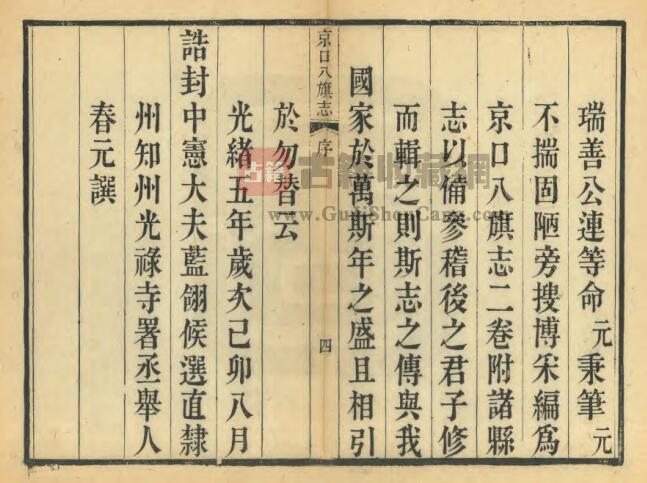 瑞善公連等命元秉筆元
不揣固陋旁搜博采編為
京口八旗志二卷附諸縣
志以備參稽後之君子修
而輯之則斯志之傳與我
國家於萬斯年之盛且相引
於勿替云
京口八旗志 序 四
光緒五年歲次己卯八月
誥封中憲大夫藍翎候選直隸
州知州光祿寺署丞舉人
春元譔
古籍 古籍收藏網
www.GujiShouCang.com